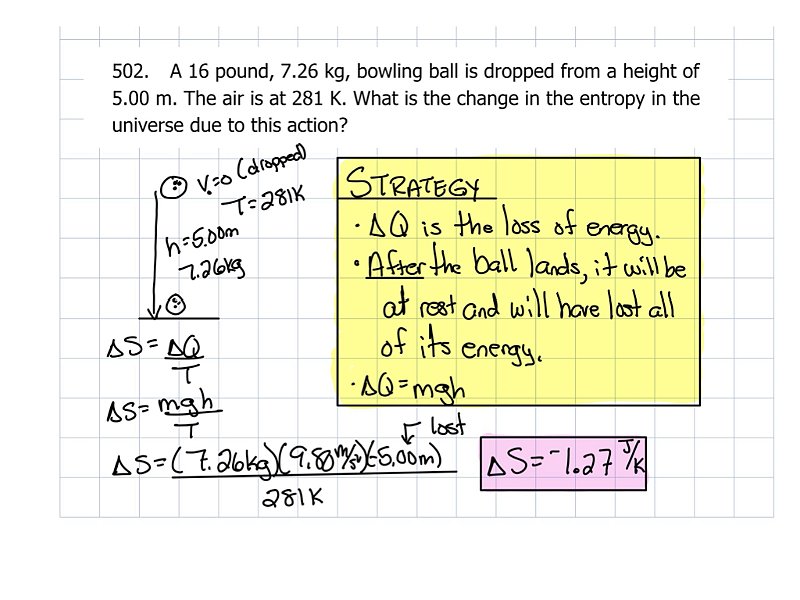 502. A 16 pound, 7.26 kg, bowling ball is dropped from a height of
5.00 m. The air is at 281 K. What is the change in the entropy in the
universe due to this action?
V₀=0 (dropped)
T=281K
h=5.00m
7.26kg
ΔS=ΔQ/T
ΔS=mgh/T
ΔS=(7.26kg)(9.80m/s²)(-5.00m)
281K
STRATEGY
· ΔQ is the loss of energy.
· After the ball lands, it will be
at rest and will have lost all
of its energy.
· ΔQ=mgh
lost
ΔS=⁻1.27 J/K